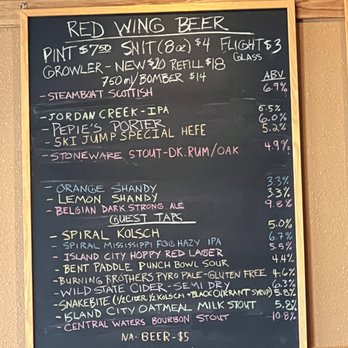 RED WING BEER
PINT $7.50 SNIT (8oz) $4 FLIGHT $3
GLASS
GROWLER - NEW $20 REFILL $18
750ml/BOMBER $14
ABV
- STEAMBOAT SCOTTISH 6.9%
- JORDAN CREEK - IPA 6.5%
- PEPIE'S PORTER 6.0%
- SKI JUMP SPECIAL HEFE 5.2%
- STONEWARE STOUT - DK. RUM/OAK 4.9%
- ORANGE SHANDY 3.3%
- LEMON SHANDY 3.3%
- BELGIAN DARK STRONG ALE 9.8%
GUEST TAPS
- SPIRAL KOLSCH 5.0%
- SPIRAL MISSISSIPPI FOG HAZY IPA 6.7%
- ISLAND CITY HOPPY RED LAGER 5.5%
- BENT PADDLE PUNCH BOWL SOUR 4.4%
- BURNING BROTHERS PYRO PALE - GLUTEN FREE 4.6%
- WILD STATE CIDER - SEMI DRY 6.3%
- SNAKEBITE (1/2 CIDER 1/2 KOLSCH + BLACK CURRANT SYRUP) 5.8%
- ISLAND CITY OATMEAL MILK STOUT 5.8%
- CENTRAL WATERS BOURBON STOUT 10.8%
NA - BEER - $5